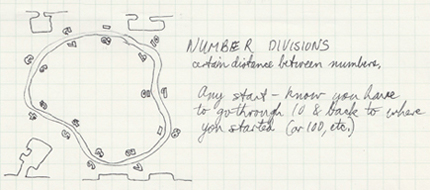 NUMBER DIVISIONS
certain distance between numbers,
Any start - know you have
to go through 10 & back to where
you started (or 100, etc.)